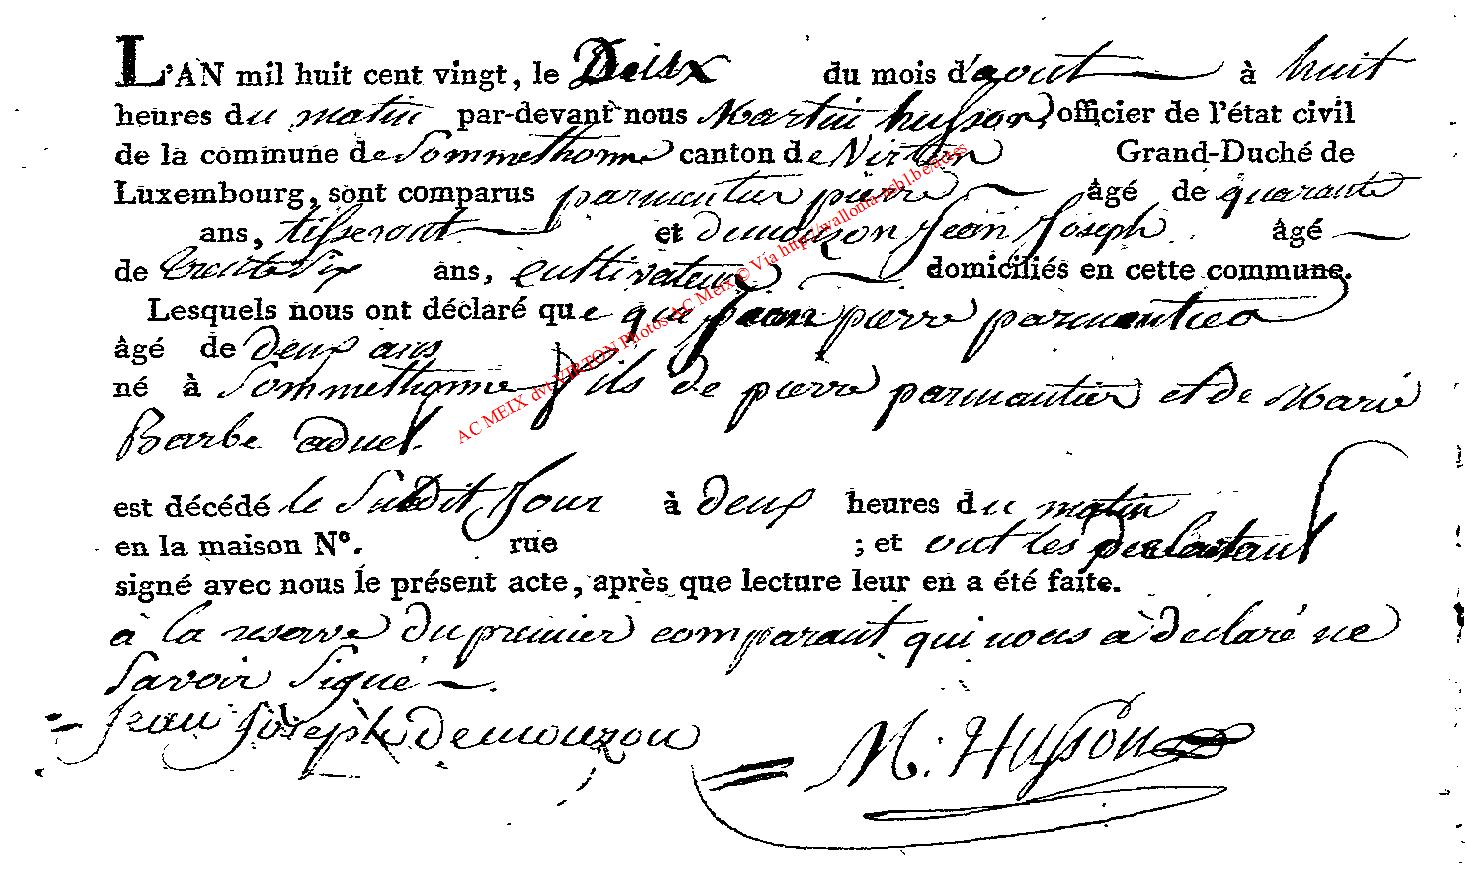 L'AN mil huit cent vingt, le Deux du mois d'aout à huit
heures du matin par-devant nous Martin husson, officier de l'état civil
de la commune de Sommethonne canton de Virton Grand-Duché de
Luxembourg, sont comparus parmentier pierre âgé de quarante
ans, tisserant et demouzon Jean Joseph âgé
de trente Six ans, cultivateur domiciliés en cette commune.
Lesquels nous ont déclaré que que Jean pierre parmentier
âgé de deux ans
né à Sommethonne fils de pierre parmantier et de Marie
Barbe aduel.
est décédé le Sudit Jour à deux heures du matin
en la maison N°. rue ; et ont les declartant
signé avec nous le présent acte, après que lecture leur en a été faite.
à la reserve du premier comparant qui nous a declaré ne
Savoir Signé.
Jean Joseph Demouzon M: Husson
AC MEIX dvt VIRTON Photos AC Meix © Via http://wallonia-asbl.be/actes